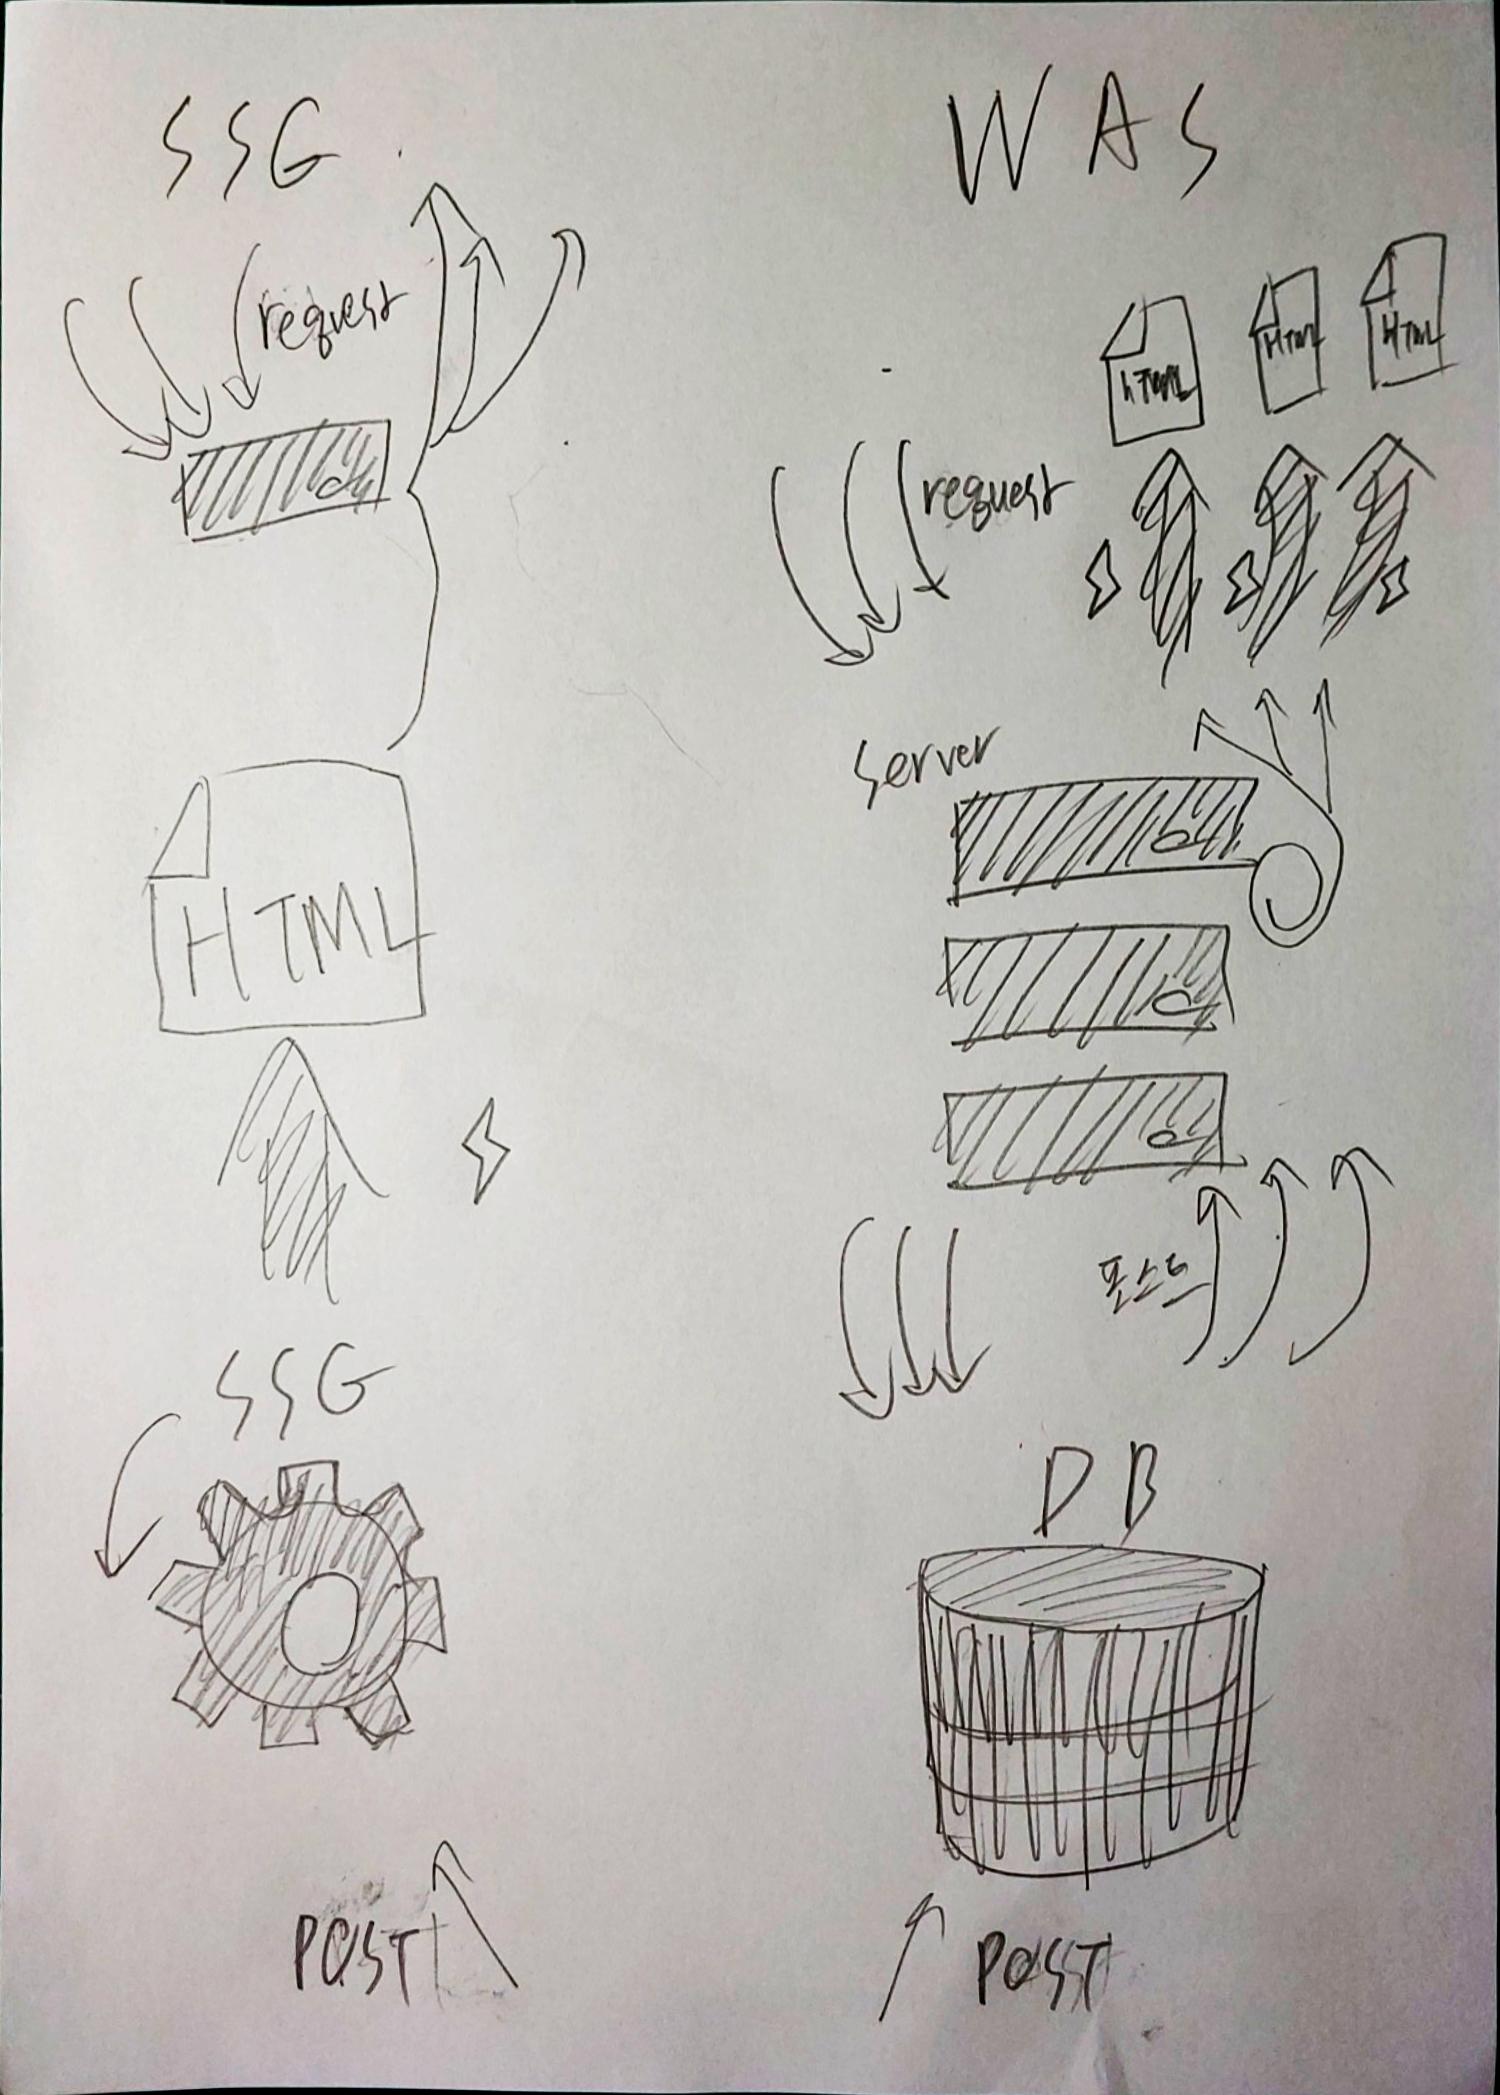 SSG
request
HTML
SSG
POST
WAS
HTML
HTML
hTML
request
server
포스트
DB
POST